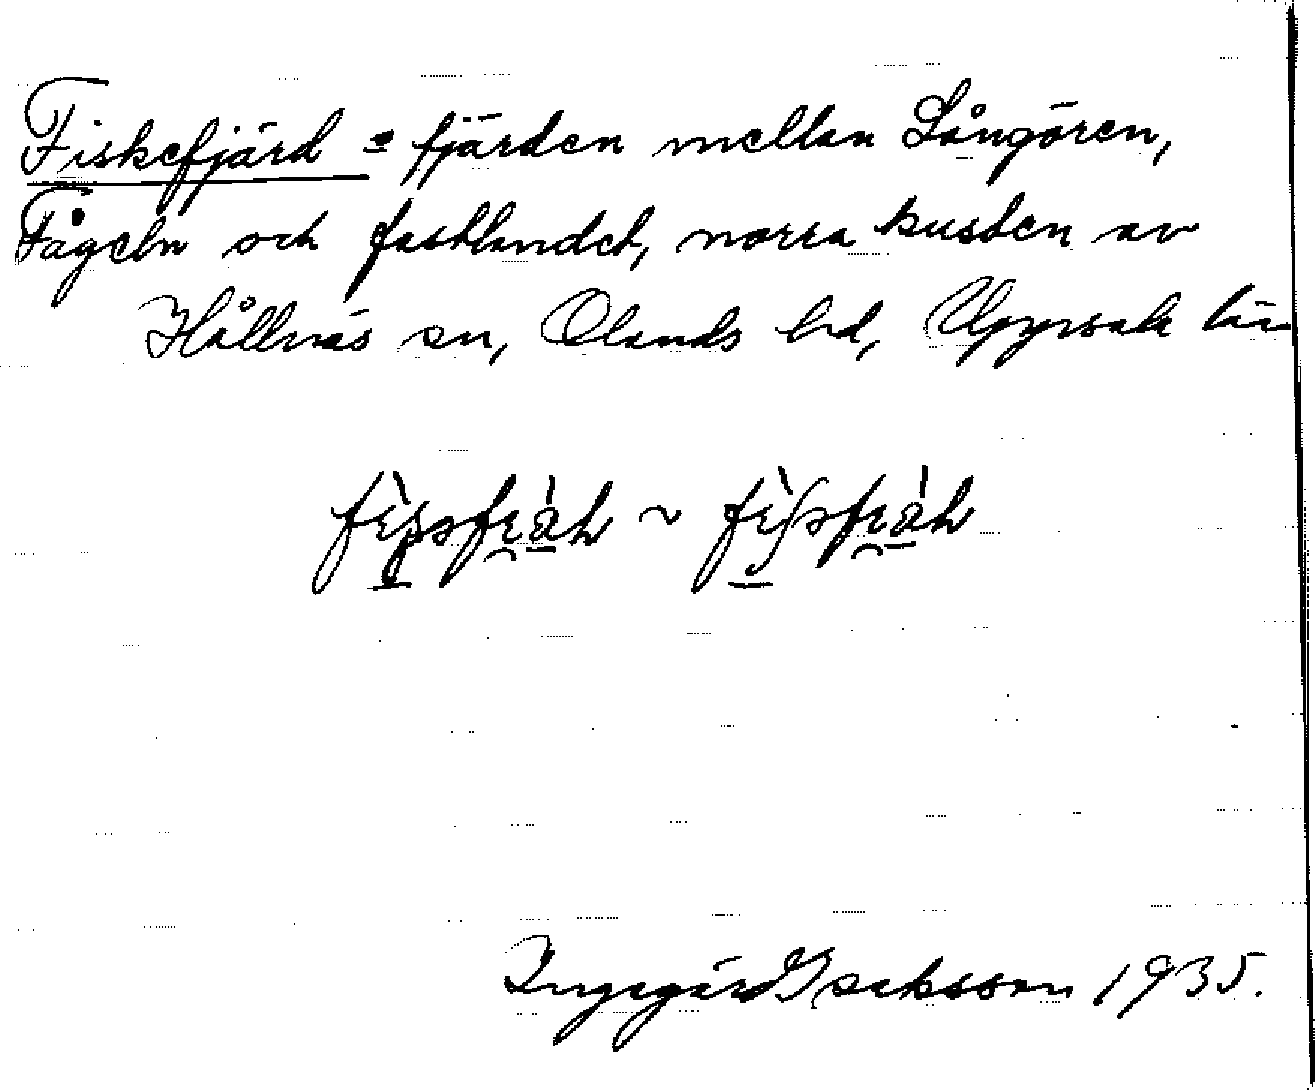 Fiskefjärd = fjärden mellan Långören,
Fågeln och fastlandet, norra kusten av
Hållnäs sn, Olands hd, Uppsala län
~
Ingegärd Isaksson 1935.